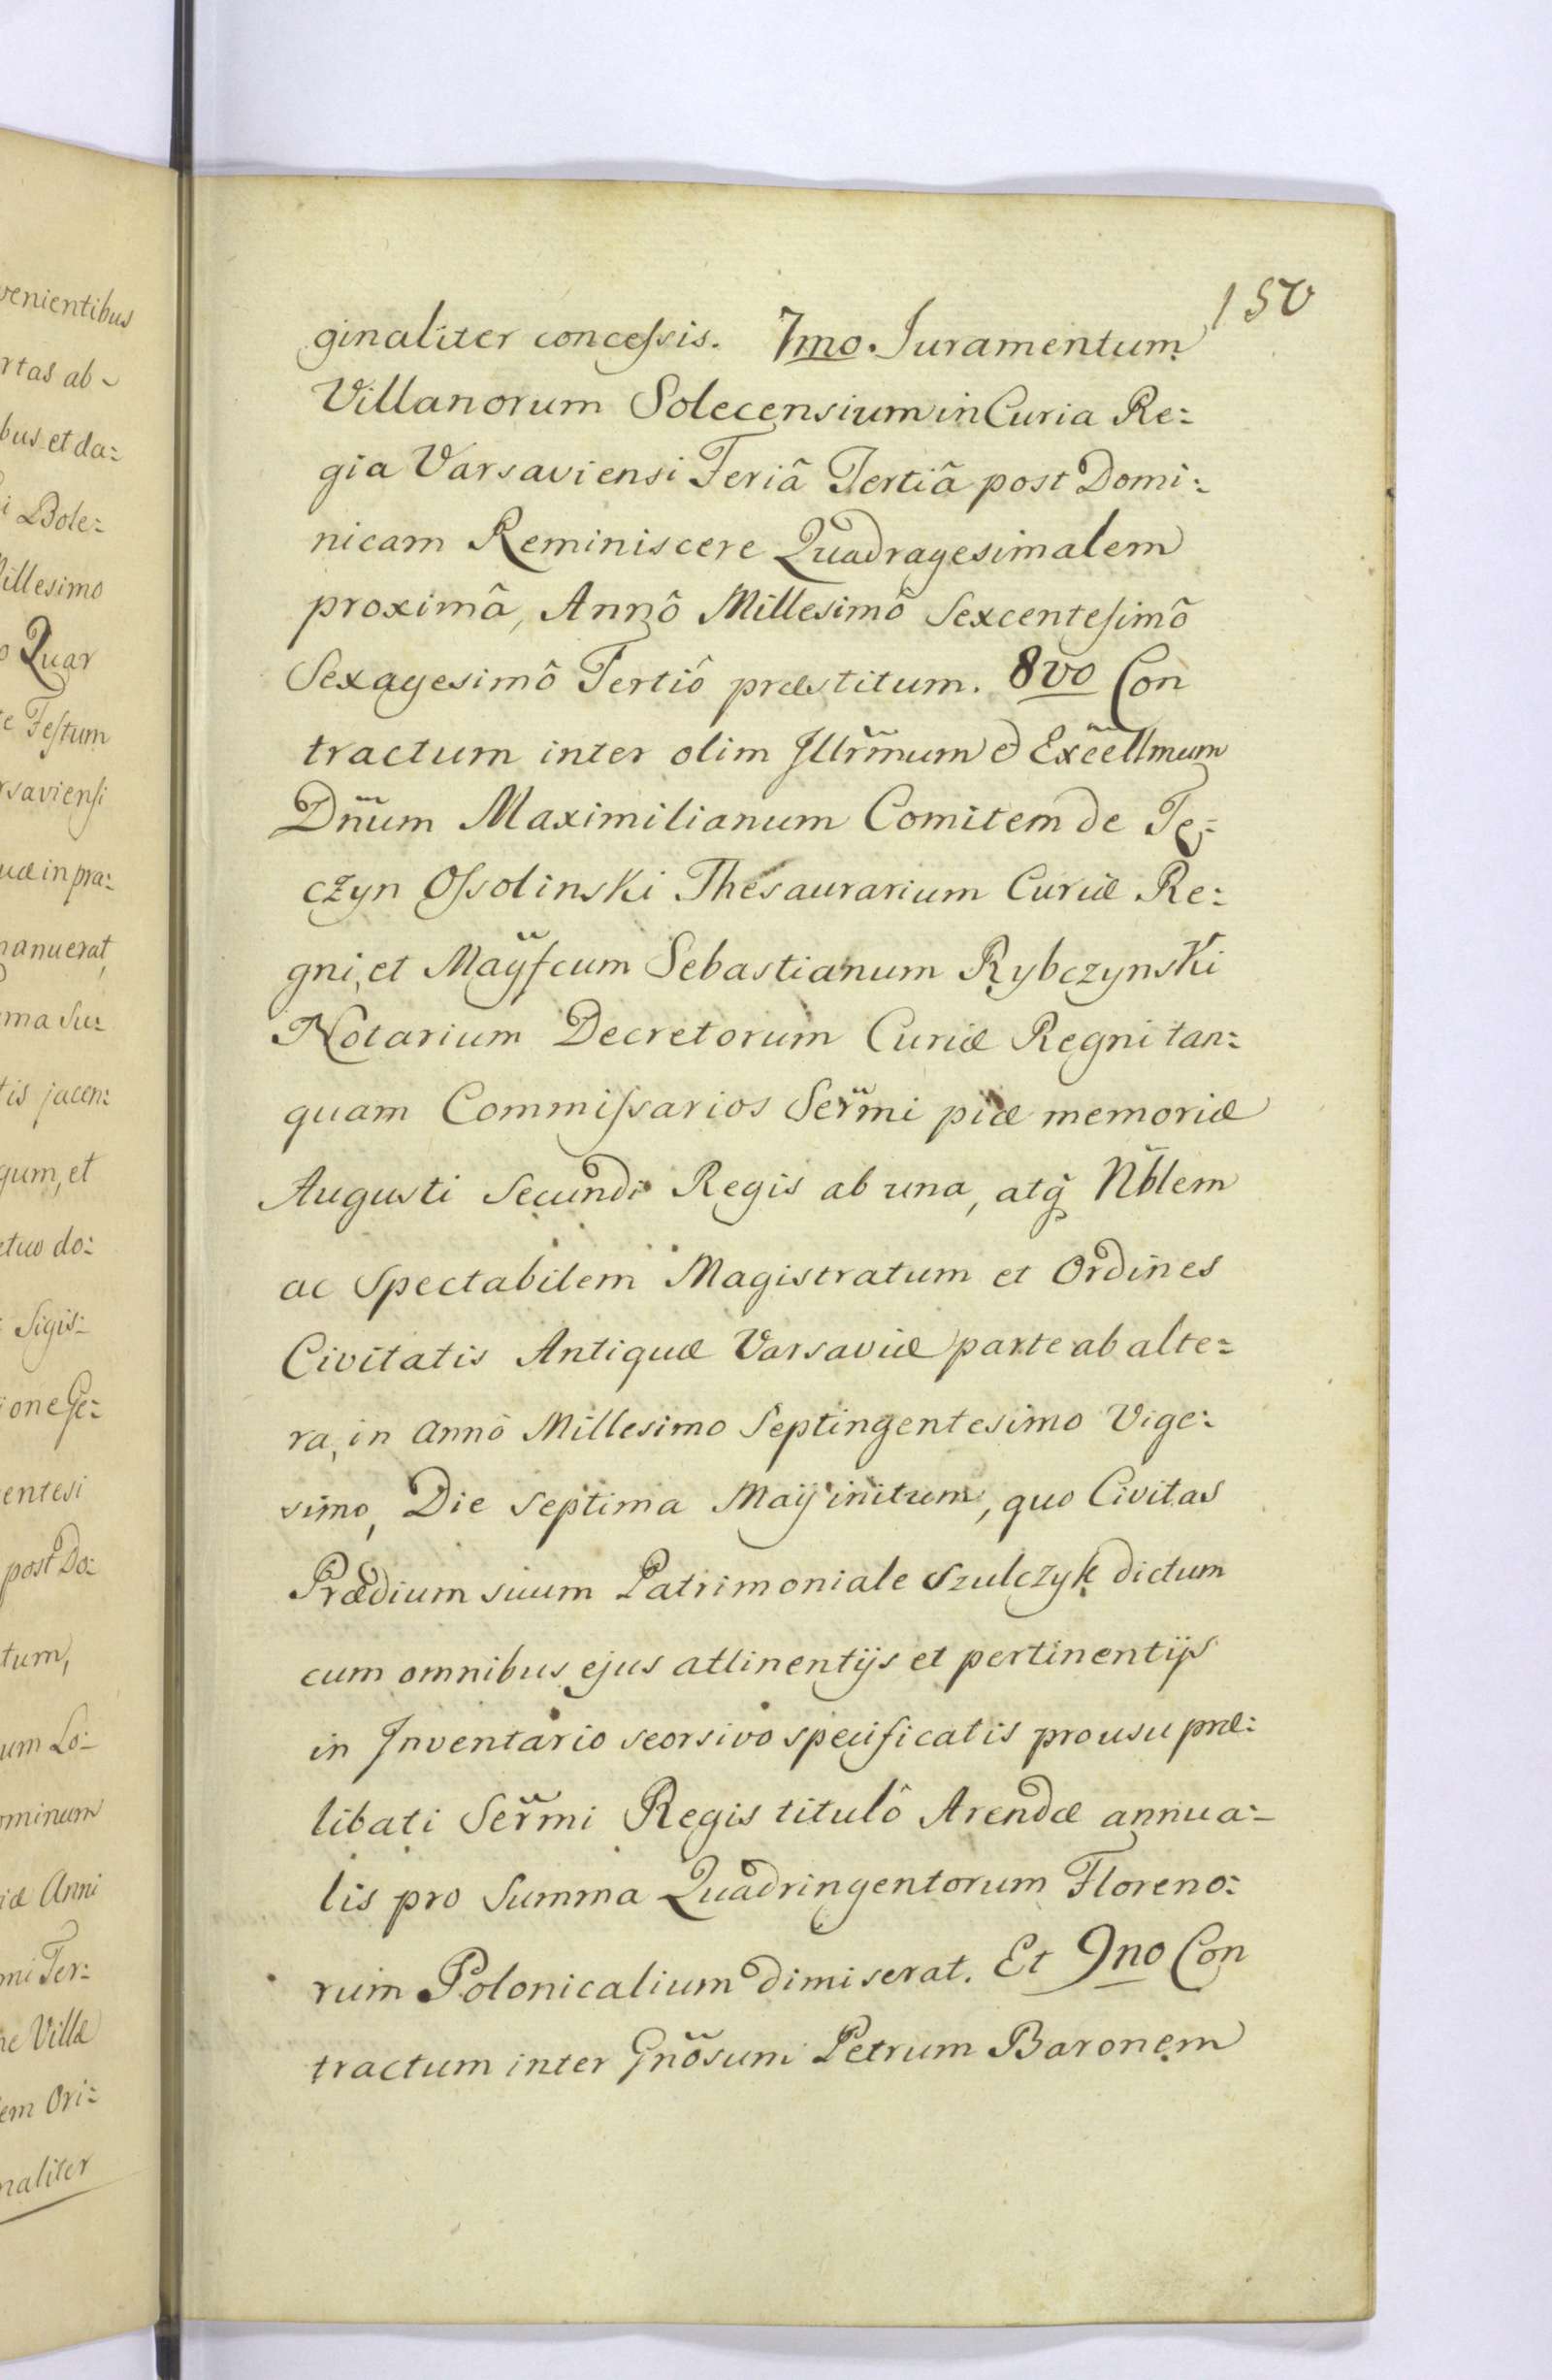 venientibus
rtas ab
bus et da:
i Bole:
illesimo
o Quar
te Festum
rsaviensi
uæ in præ:
manuerat,
ma Su:
tis jacen:
gum, et
etuo do:
Sigis:
ione Ge:
entesi
post Do:
tum,
um Lo:
ominum
iæ Anni
mi Ter:
ne Villæ
em Ori:
naliter
150
ginaliter concessis. 7mo. Juramentum
Villanorum Solecensium in Curia Re:
gia Varsaviensi Feriâ Tertiâ post Domi:
nicam Reminiscere Quadragesimalem
proximâ, Annô Millesimô Sexcentesimô
Sexagesimô Tertiô præstitum. 8vo Con
tractum inter olim Illrm̃um et Excellm̃um
Dn̄um Maximilianum Comitem de Tę:
czyn Ossolinski Thesaurarium Curiæ Re:
gni, et Magfcum Sebastianum Rybczynski
Notarium Decretorum Curiæ Regni tan:
quam Commissarios Serm̃i piæ memoriæ
Augusti Secundi Regis ab una, atq̃ Nblem
ac Spectabilem Magistratum et Ordines
Civitatis Antiquæ Varsaviæ parte ab alte:
ra, in annô Millesimo Septingentesimo Vige:
simo, Die Septima Maij initum, quo Civitas
Prædium suum Patrimoniale Szulczyk dictum
cum omnibus ejus attinentijs et pertinentijs
in Inventario seorsivo specificatis pro usu præ:
libati Serm̃i Regis titulô Arendæ annua:
lis pro Summa Quadringentorum Floreno:
rum Polonicalium dimiserat. Et 9no Con
tractum inter Gnõsum Petrum Baronem